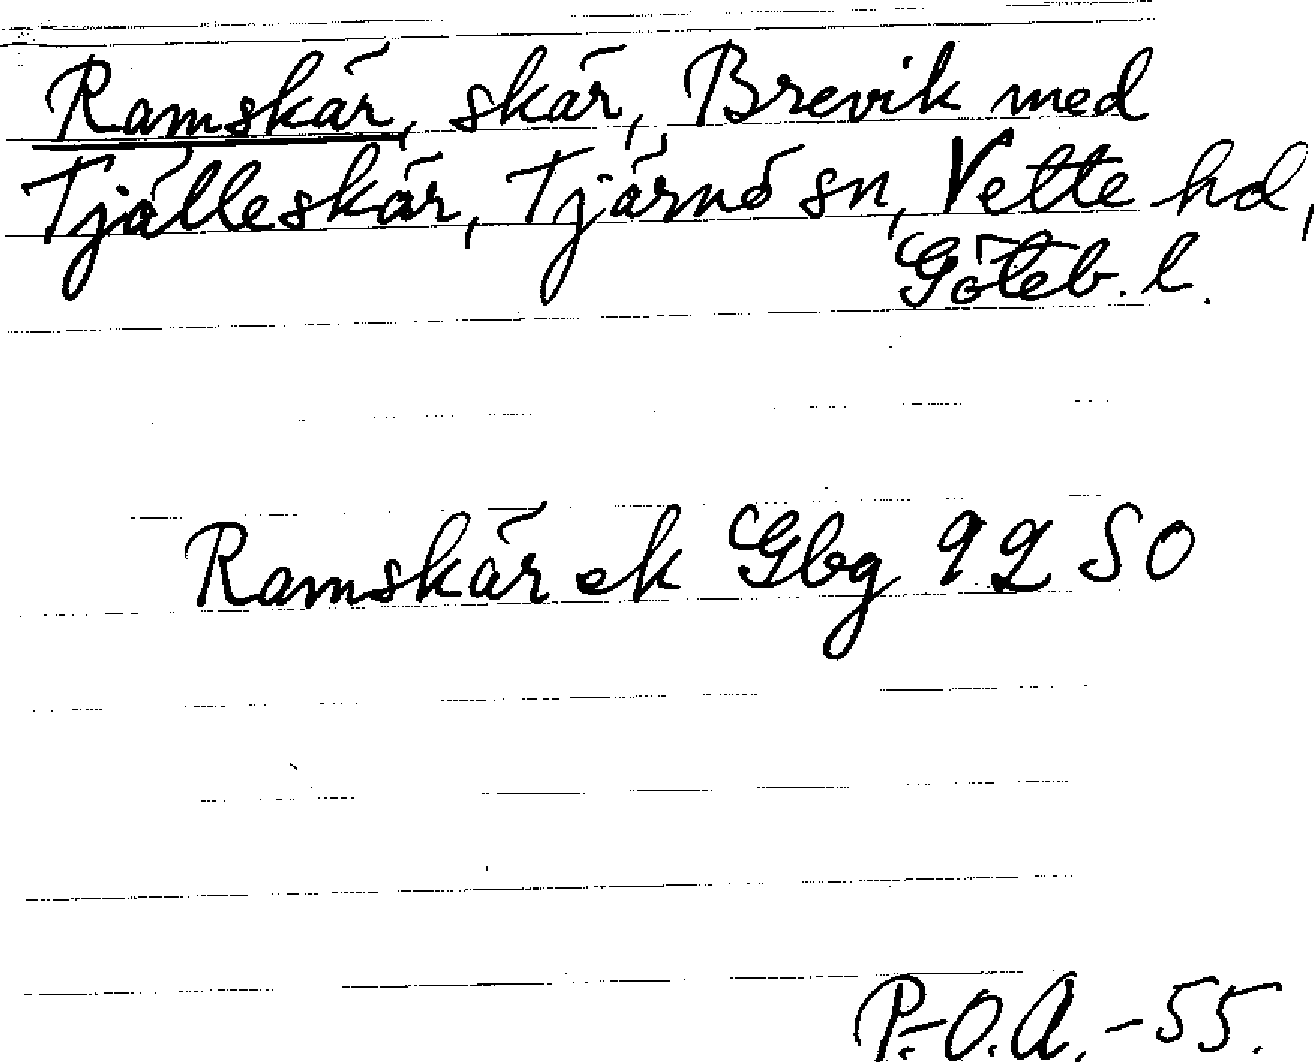 Ramskär, skär, Brevik med
Tjälleskär, Tjärnö sn, Vette hd,
Göteb. l.
Ramskär ek Gbg 92 SO
P.-O.A. -55.